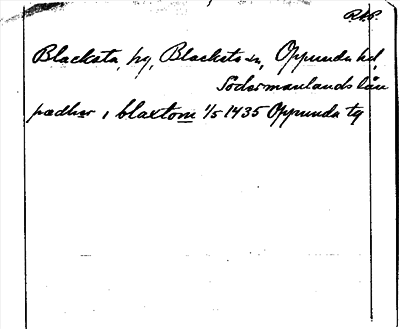 RAP.
Blacksta, pg, Blacksta sn, Oppunda hd,
Södermanlands län
pædher i blaxtom 1/5 1435 Oppunda tg